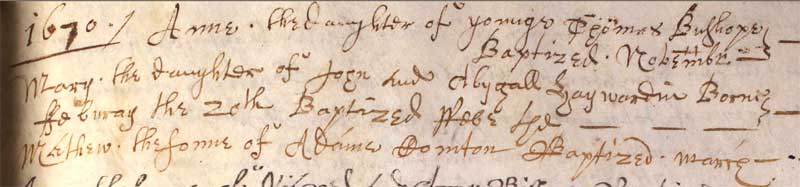 1670. / Anne. the daughter of younge Thomas Bushope
Baptized. Novembr.
Mary. the daughter of John and Abygall Haywardin Borne
ffebruary the 20th Baptized ffebe the
Mathew. the sonne of Adame Domton Baptized. March